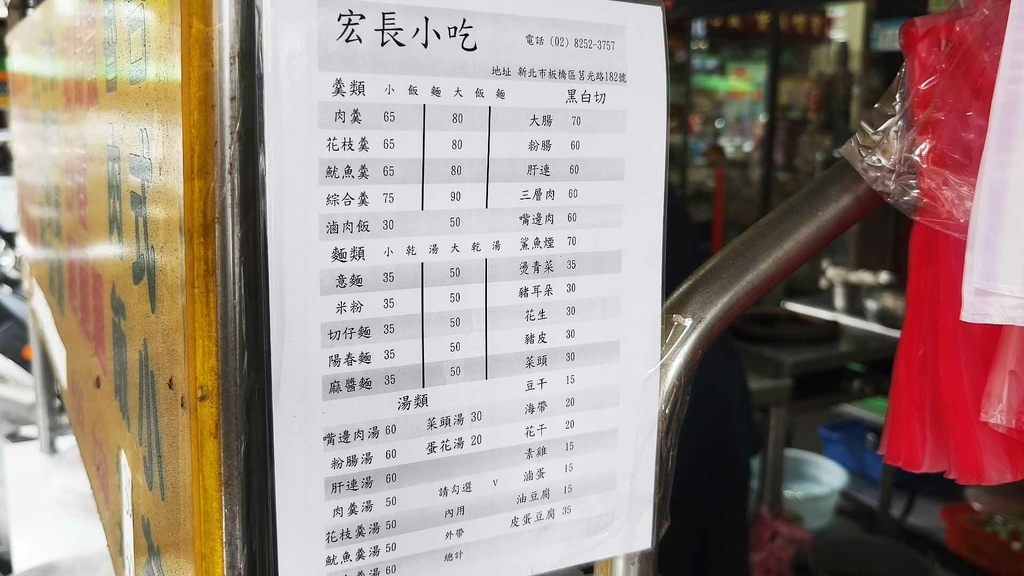 宏長小吃
電話 (02) 8252-3757
地址 新北市板橋區莒光路182號
羹類 小 飯 麵 大 飯 麵
肉羹 65 80
花枝羹 65 80
魷魚羹 65 80
綜合羹 75 90
滷肉飯 30 50
麵類 小 乾 湯 大 乾 湯
意麵 35 50
米粉 35 50
切仔麵 35 50
陽春麵 35 50
麻醬麵 35 50
湯類
嘴邊肉湯 60 菜頭湯 30
粉腸湯 60 蛋花湯 20
肝連湯 60
肉羹湯 50 請勾選 V
花枝羹湯 50 內用
魷魚羹湯 50 外帶
羹湯 60 總計
黑白切
大腸 70
粉腸 60
肝連 60
三層肉 60
嘴邊肉 60
鯊魚煙 70
燙青菜 35
豬耳朵 30
花生 30
豬皮 30
菜頭 30
豆干 15
海帶 20
花干 20
素雞 15
滷蛋 15
油豆腐 15
皮蛋豆腐 35